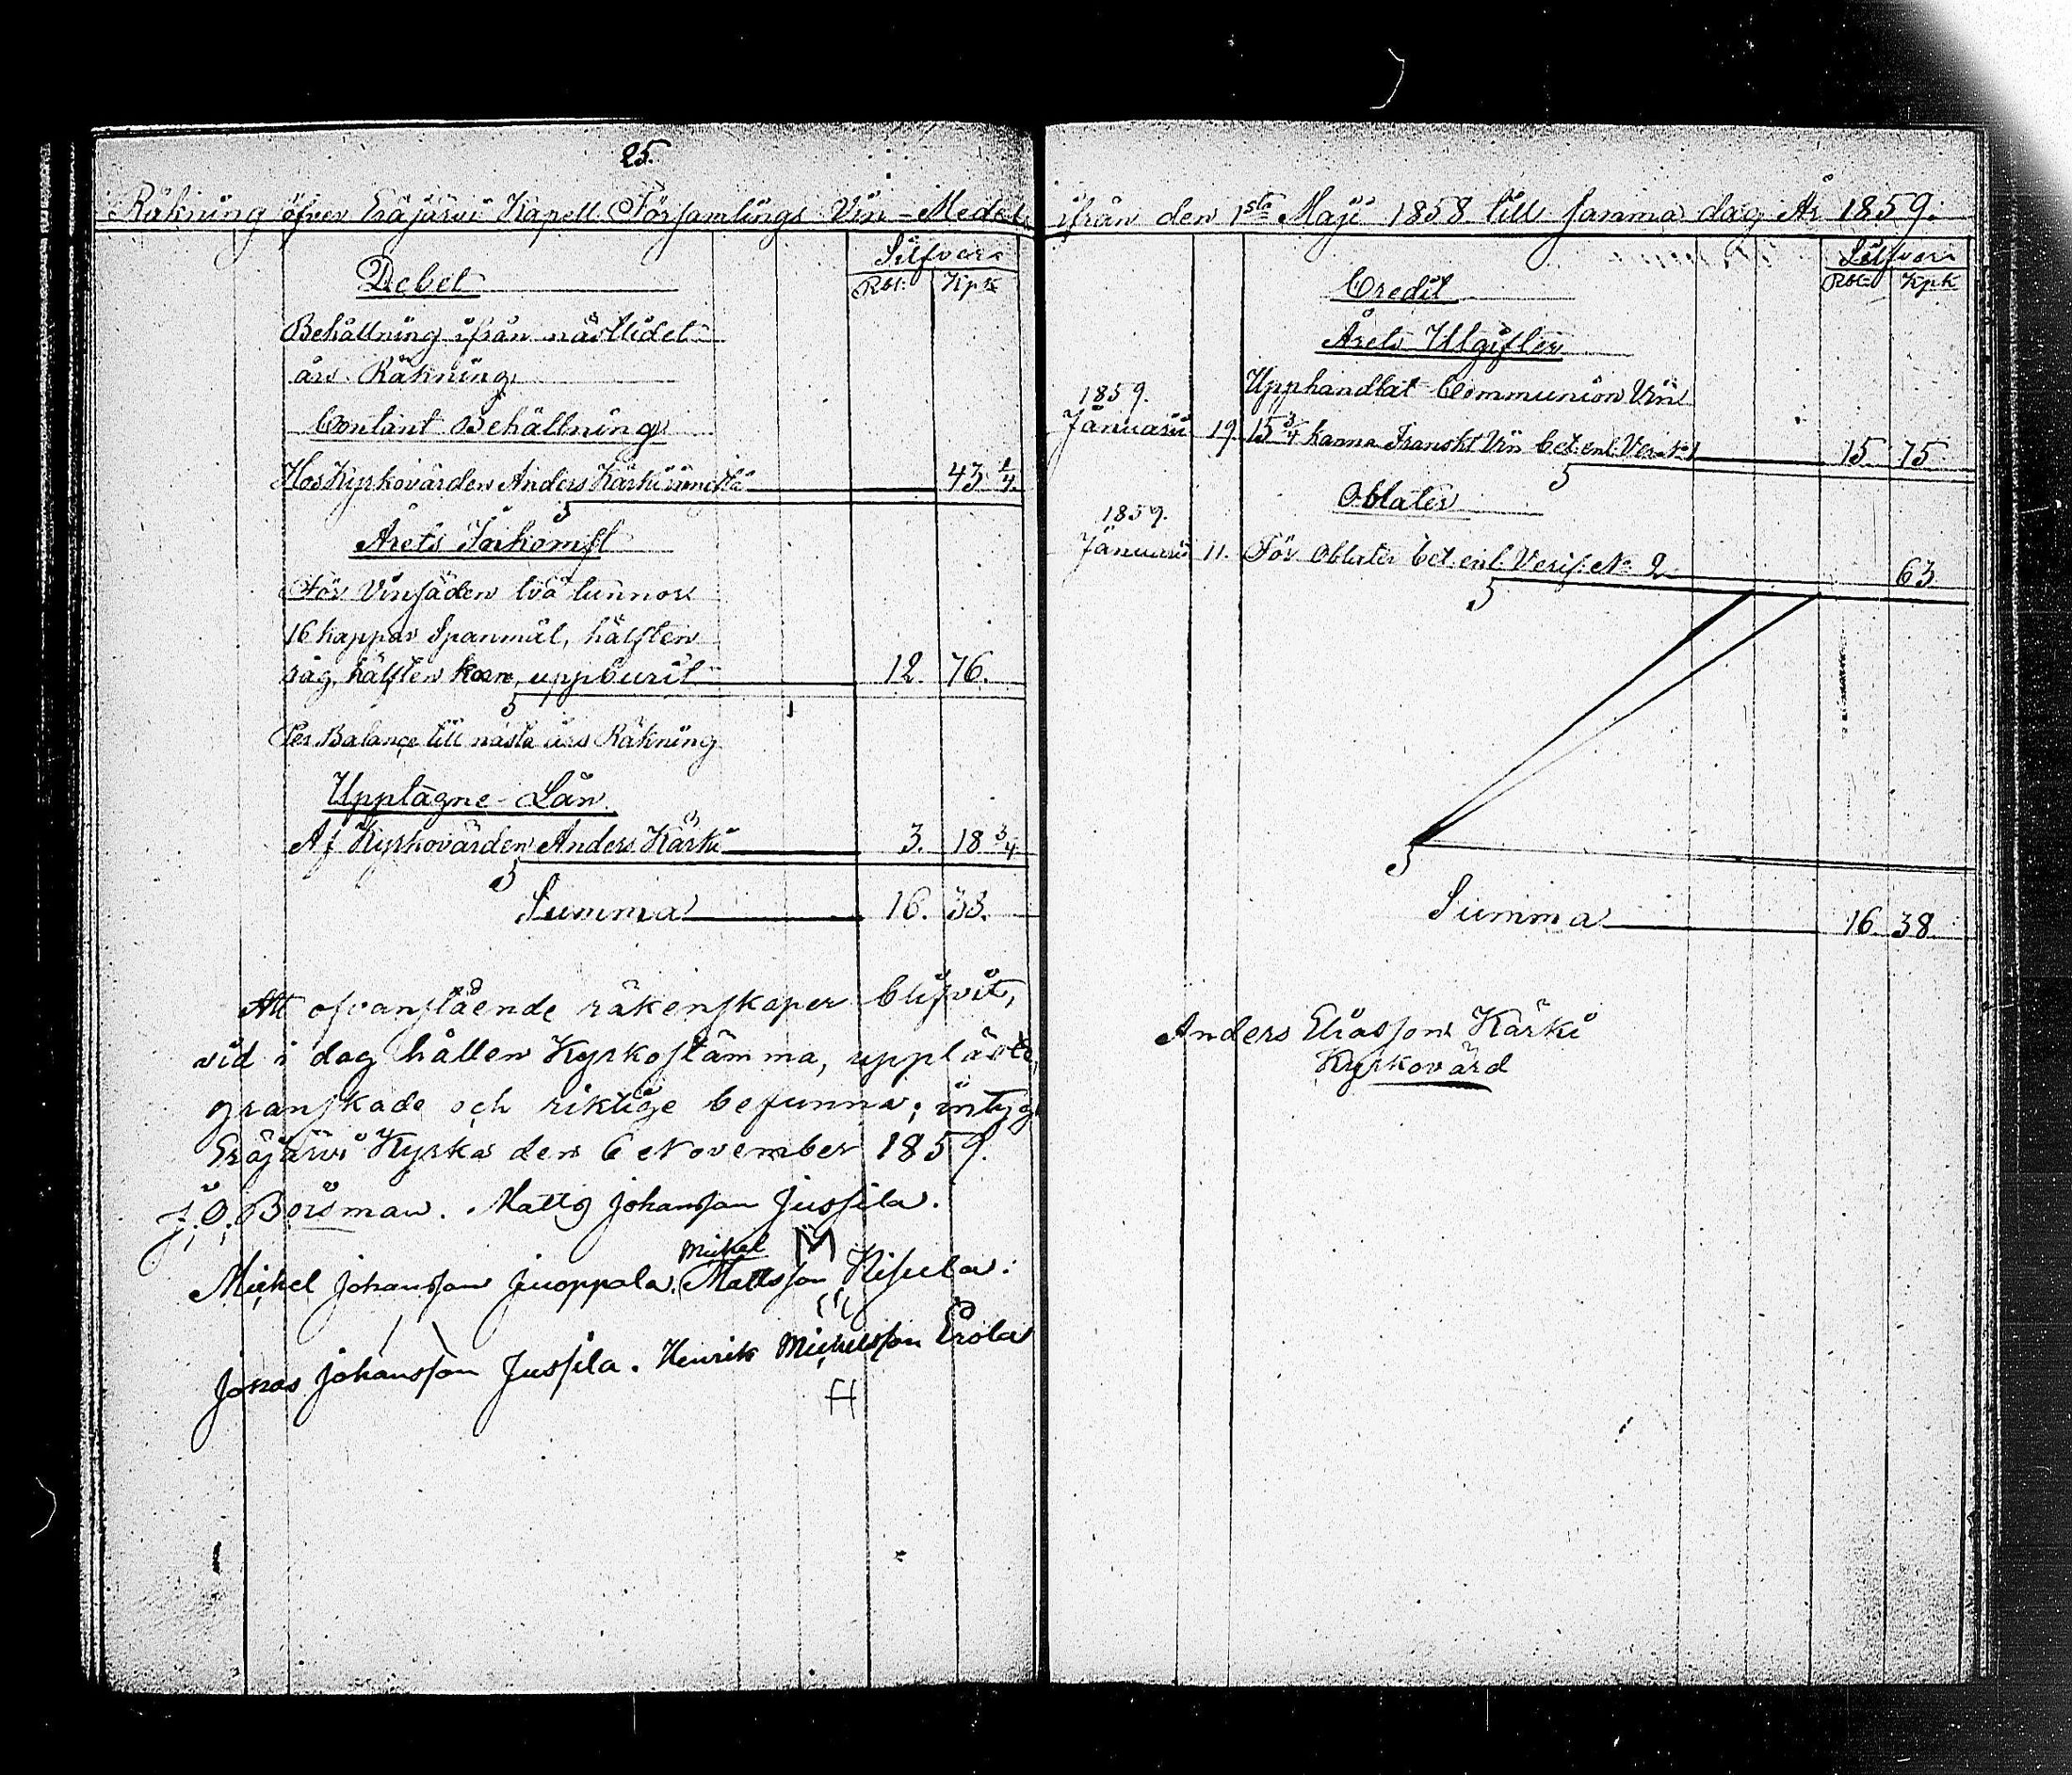 25.
Räkning öfver Eräjärvi Kapell Församlings Vin-Medel
Silfver
Debet
Rbl: Kpk
Behållning ifrån nästlidet
års Räkning
Contant Behållning
Hos Kyrkovärden Anders Kärki innestå 43 1/4.
Årets Inkomst
För Vinsäden två tunnor
16 kappar Spanmål, hälften
råg, hälften korn, uppburit 12. 76.
Per Balance till nästa års Räkning
Upptagne Lån
Af Kyrkovärden Anders Kärki 3. 18 3/4
Summa 16. 38.
Att ofvanstående räkenskaper blifvit,
vid i dag hållen Kyrkostämma, uppläste,
granskade och riktige befunna; intyga
Eräjärvi Kyrka den 6 November 1859.
J. O. Boisman. Matts Johansson Jussila.
Michel Johansson Juoppala. Michel Mattsson Kisula.
Jonas Johansson Jussila. Henrik Michelsson Erola
ifrån den 1sta Maji 1858 till samma dag År 1859.
Silfver
Credit
Rbl: Kpk
Årets Utgifter
Upphandlat Communion Vin
1859.
Januarii 19. 15 3/4 kanna Franskt Vin bet. enl. Ver. No 1 15 75
Oblater
1859.
Januarii 11. För Oblater bet. enl. Verif. No 2 63
Summa 16 38
Anders Eliasson Kärki
Kyrkovärd